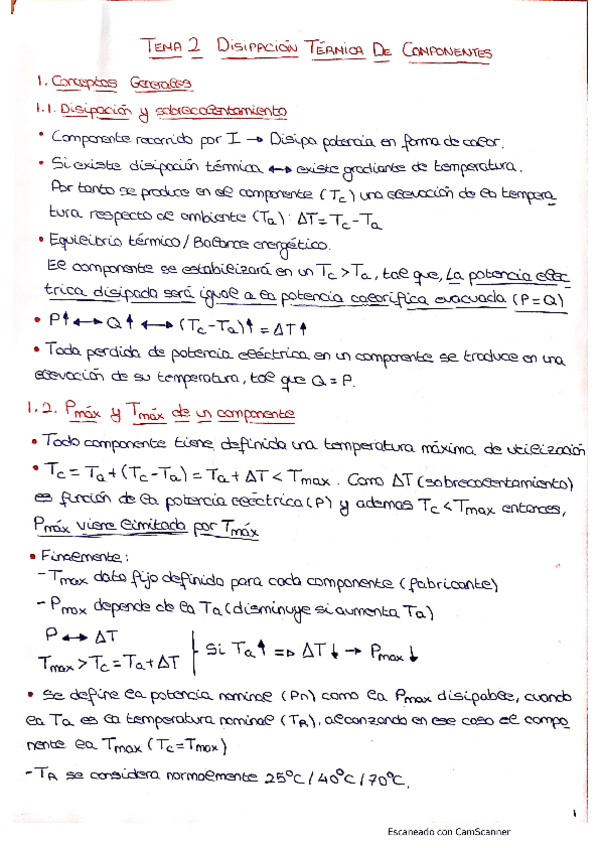 TEMA 2 DISIPACIÓN TÉRMICA DE COMPONENTES
1. Conceptos Generales
1.1. Disipación y sobrecalentamiento
• Componente recorrido por I → Disipa potencia en forma de calor.
• Si existe disipación térmica ↔ existe gradiante de temperatura.
Por tanto se produce en el componente (Tc) una elevación de la tempera
tura respecto al ambiente (Ta): ΔT = Tc - Ta
• Equilibrio térmico / Balance energético.
El componente se estabilizará en un Tc > Ta, tal que, La potencia eléc-
trica disipada será igual a la potencia calorífica evacuada (P = Q)
• P↑ ↔ Q↑ ↔ (Tc - Ta)↑ = ΔT↑
• Toda perdida de potencia eléctrica en un componente se traduce en una
elevación de su temperatura, tal que Q = P.
1.2. Pmáx y Tmáx de un componente
• Todo componente tiene definida una temperatura máxima de utilización
• Tc = Ta + (Tc - Ta) = Ta + ΔT < Tmax. Como ΔT (sobrecalentamiento)
es función de la potencia eléctrica (P) y ademas Tc < Tmax entonces,
Pmáx viene limitada por Tmáx
• Finalmente:
- Tmax dato fijo definido para cada componente (fabricante)
- Pmax depende de la Ta (disminuye si aumenta Ta)
P ↔ ΔT
Tmax > Tc = Ta + ΔT | Si Ta↑ ⇒ ΔT↓ → Pmax↓
• Se define la potencia nominal (Pn) como la Pmax disipable, cuando
la Ta es la temperatura nominal (TR), alcanzando en ese caso el compo
nente la Tmax (Tc = Tmax)
- TR se considera normalmente 25ºC / 40ºC / 70ºC.
1
Escaneado con CamScanner